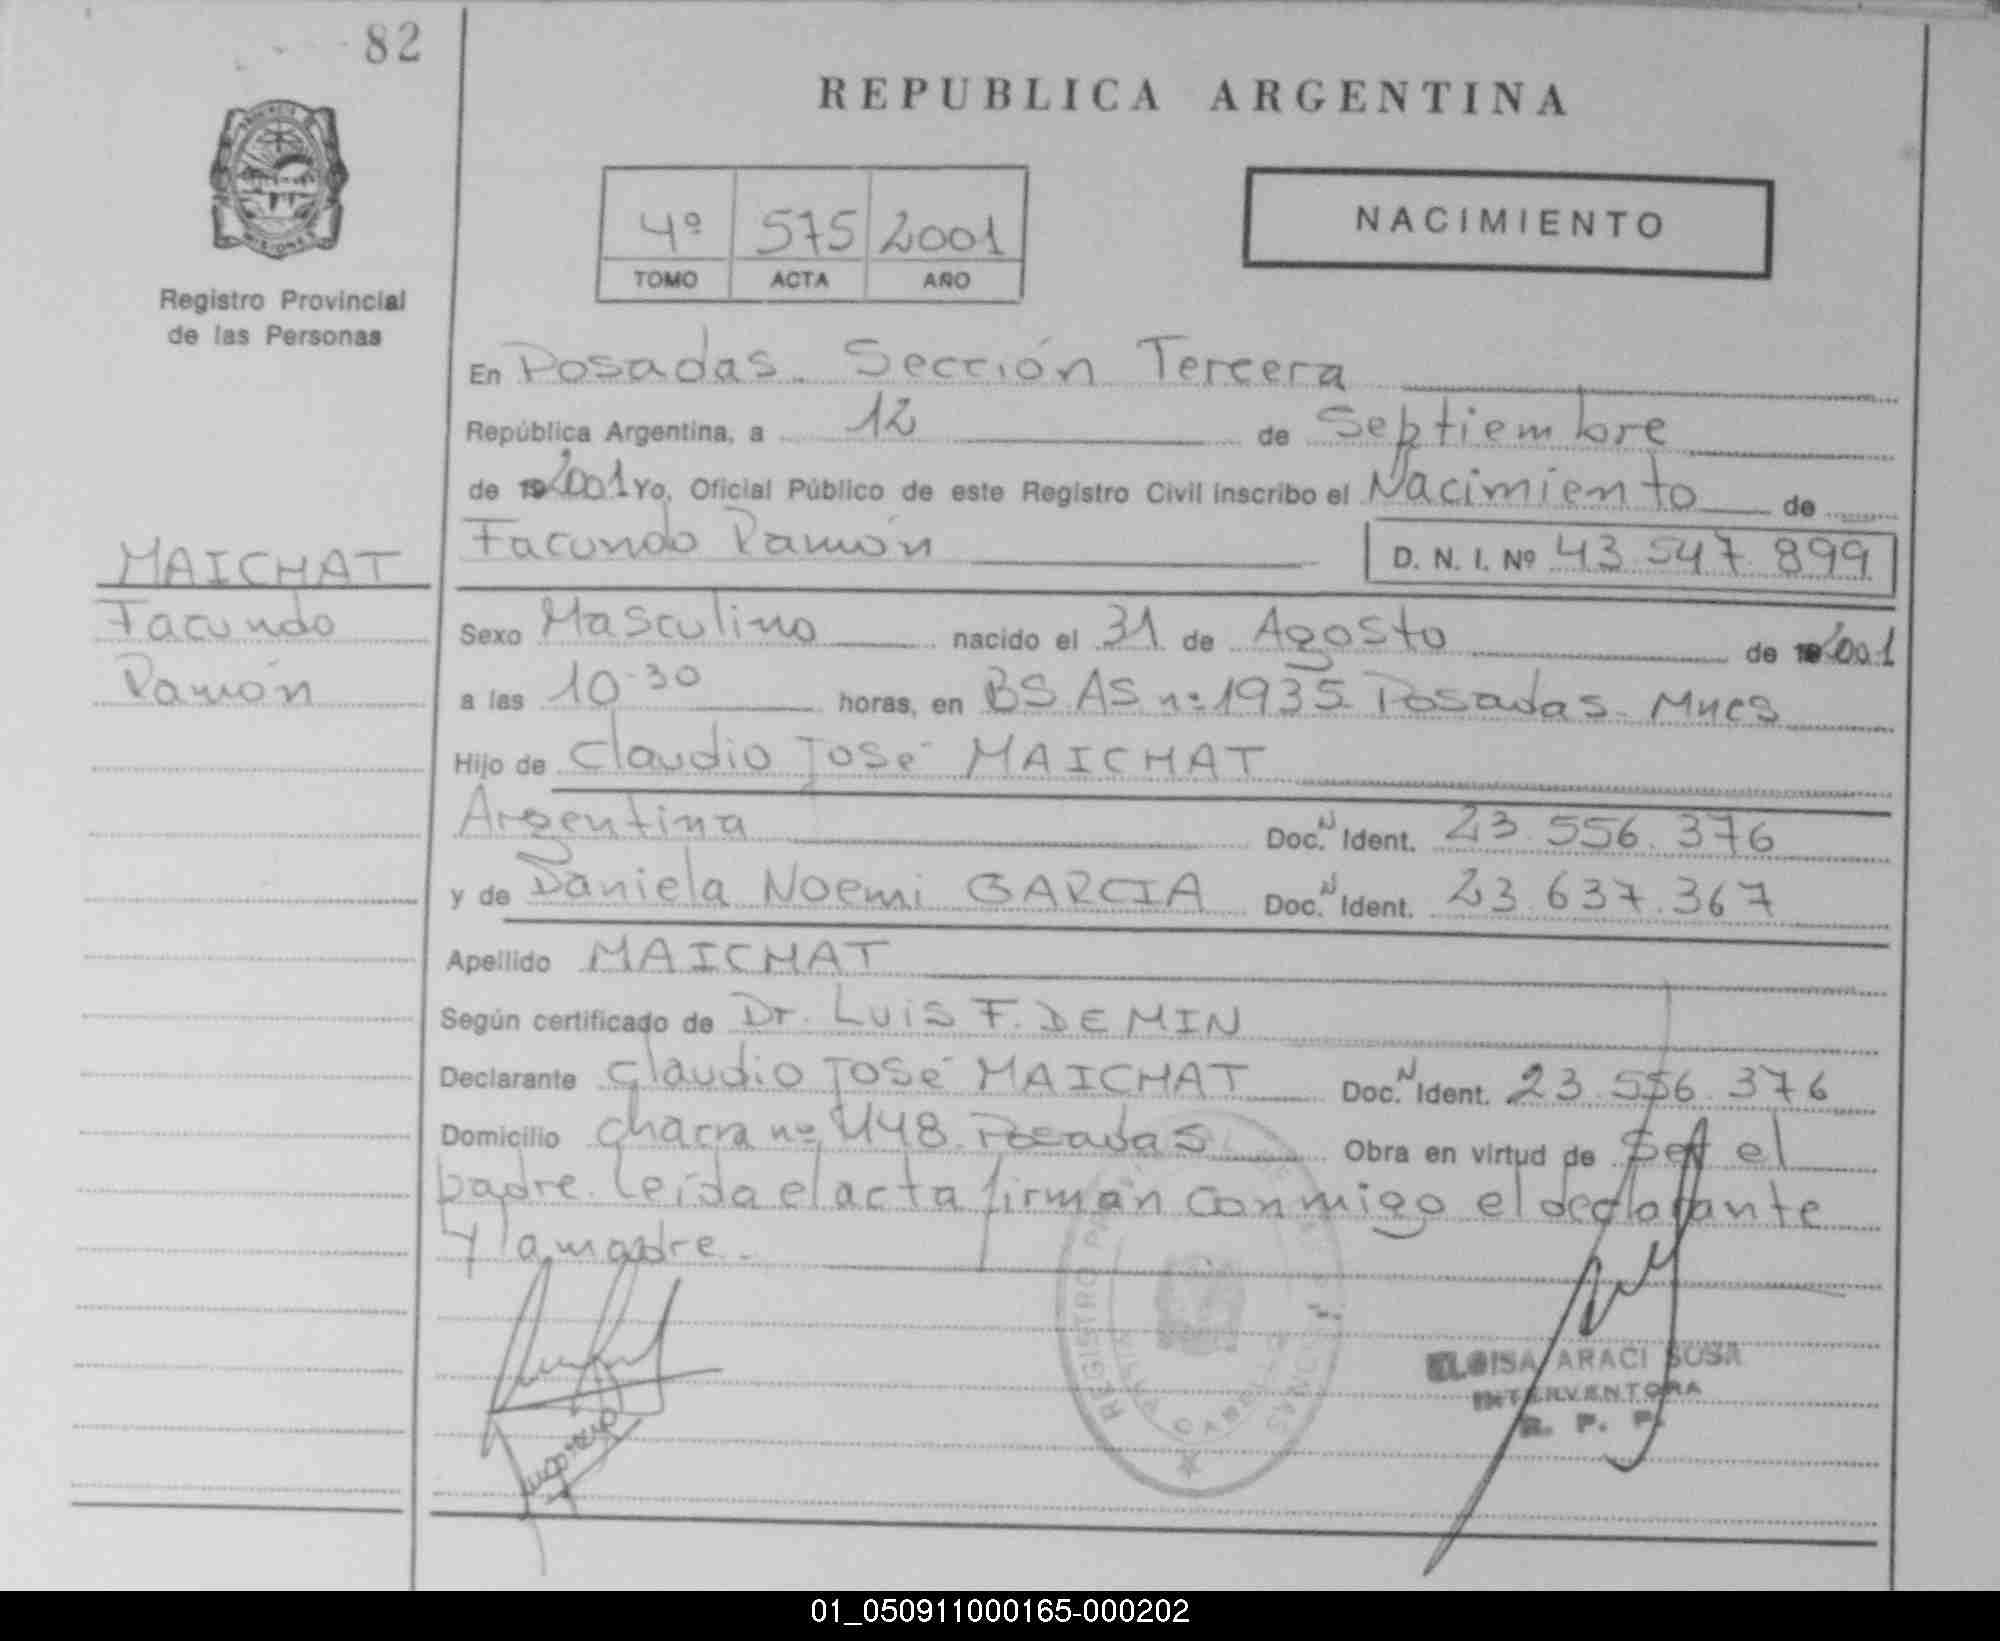 82
REPUBLICA ARGENTINA
4º 575 2001
TOMO ACTA AÑO
NACIMIENTO
PROVINCIA
MISIONES
Registro Provincial
de las Personas
En Posadas. Sección Tercera
República Argentina, a 12 de Septiembre
de 2001 Yo, Oficial Público de este Registro Civil inscribo el Nacimiento de
Facundo Ramón D. N. I. Nº 43.547.899
MAICHAT
Facundo
Ramón
Sexo Masculino nacido el 31 de Agosto de 2001
a las 10.30 horas, en BS AS nº 1935. Posadas. Mnes
Hijo de Claudio José MAICHAT
Argentina Doc. N Ident. 23.556.376
y de Daniela Noemi GARCIA Doc. N Ident. 23.637.367
Apellido MAICHAT
Según certificado de Dr. Luis F. DEMIN
Declarante Claudio José MAICHAT Doc. N Ident. 23.556.376
Domicilio chacra nº 448. Posadas Obra en virtud de Ser el
padre. Leída el acta firman conmigo el declarante
y la madre.
ELOISA ARACI SOSA
INTERVENTORA
R. P. P.
01_050911000165-000202